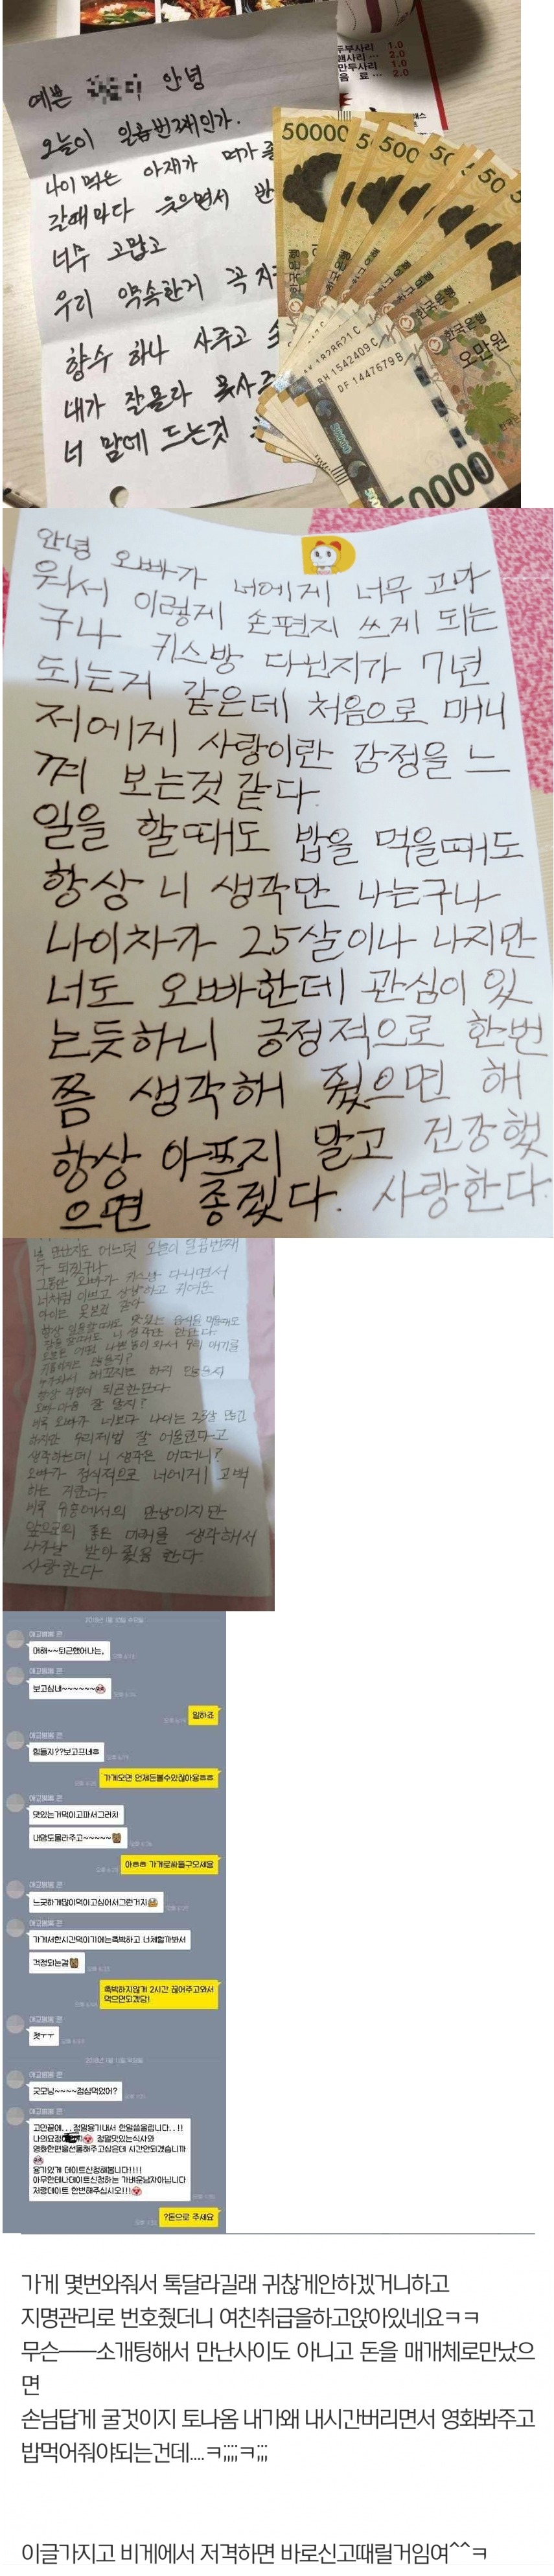 두부사리 1.0
햄사리 ... 2.0
만두사리 1.0
음료 ... 2.0
예쁜 안녕
오늘이 일곱번째인가.
나이 먹은 아재가 뭐가 좋
갈때마다 웃으면서 반
너무 고맙고
우리 약속한거 꼭 지
향수 하나 사주고
내가 잘몰라 못사
너 맘에 드는것
50000
한국은행
오만원
BH 1542409 C
DF 1447679 B
안녕 오빠가 너에게 너무 고마
워서 이렇게 손편지 쓰게 되는
구나 키스방 다닌지가 7년
되는거 같은데 처음으로 매니
저에게 사랑이란 감정을 느
껴 보는것 같다
일을 할때도 밥을 먹을때도
항상 니 생각만 나는구나
나이차가 25살이나 나지만
너도 오빠한테 관심이 있
는듯하니 긍정적으로 한번
쯤 생각해 줬으면 해
항상 아프지 말고 건강했
으면 좋겠다. 사랑한다
널 만난지도 어느덧 오늘이 일곱번째
가 되었구나
그동안 오빠가 키스방 다니면서
너처럼 이쁘고 상냥하고 귀여운
아이는 못본것 같다
항상 퇴근한단다
오빠 마음 잘 알지?
비록 오빠가 너보다 나이는 23살 많긴
하지만 우리제법 잘 어울린다고
생각하는데 니 생각은 어떠니?
오빠가 정식적으로 너에게 고백
하는 거란다.
비록 유흥에서의 만남이지만
앞으로의 좋은 미래를 생각해서
사랑한다
2018년 1월 10일 수요일
머해~~퇴근했어나는,
보고십네~~~~~~
일하죠
힘들지??보고프네ㅎ
가게오면 언제든볼수있잖아용ㅎㅎ
맛있는거먹이고파서그러치
내맘도몰라주고~~~~~
아ㅎㅎ 가게로싸들구오세용
느긋하게많이먹이고싶어서그런거지
가게서한시간먹이기에는촉박하고 너체할까봐서
걱정되는걸
촉박하지않게 2시간 끊어주고와서
먹으면되겠당!
쳇ㅜㅜ
2018년 1월 11일 목요일
굿모닝~~~~점심먹었어?
고민끝에...정말용기내서 한말씀올립니다..!!
나의요정 정말맛있는식사와
영화한편을선물해주고싶은데 시간안되겠습니까
용기있게 데이트신청해봅니다!!!!
아무한테나데이트신청하는 가벼운남자아닙니다
저랑데이트 한번해주십시오!!!
?돈으로 주세요
가게 몇번와줘서 톡달라길래 귀찮게안하겠거니하고
지명관리로 번호줬더니 여친취급을하고앉아있네요ㅋㅋ
무슨——소개팅해서 만난사이도 아니고 돈을 매개체로만났으
면
손님답게 굴것이지 토나옴 내가왜 내시간버리면서 영화봐주고
밥먹어줘야되는건데....ㅋ;;;;ㅋ;;;
이글가지고 비게에서 저격하면 바로신고때릴거임여^^ㅋ